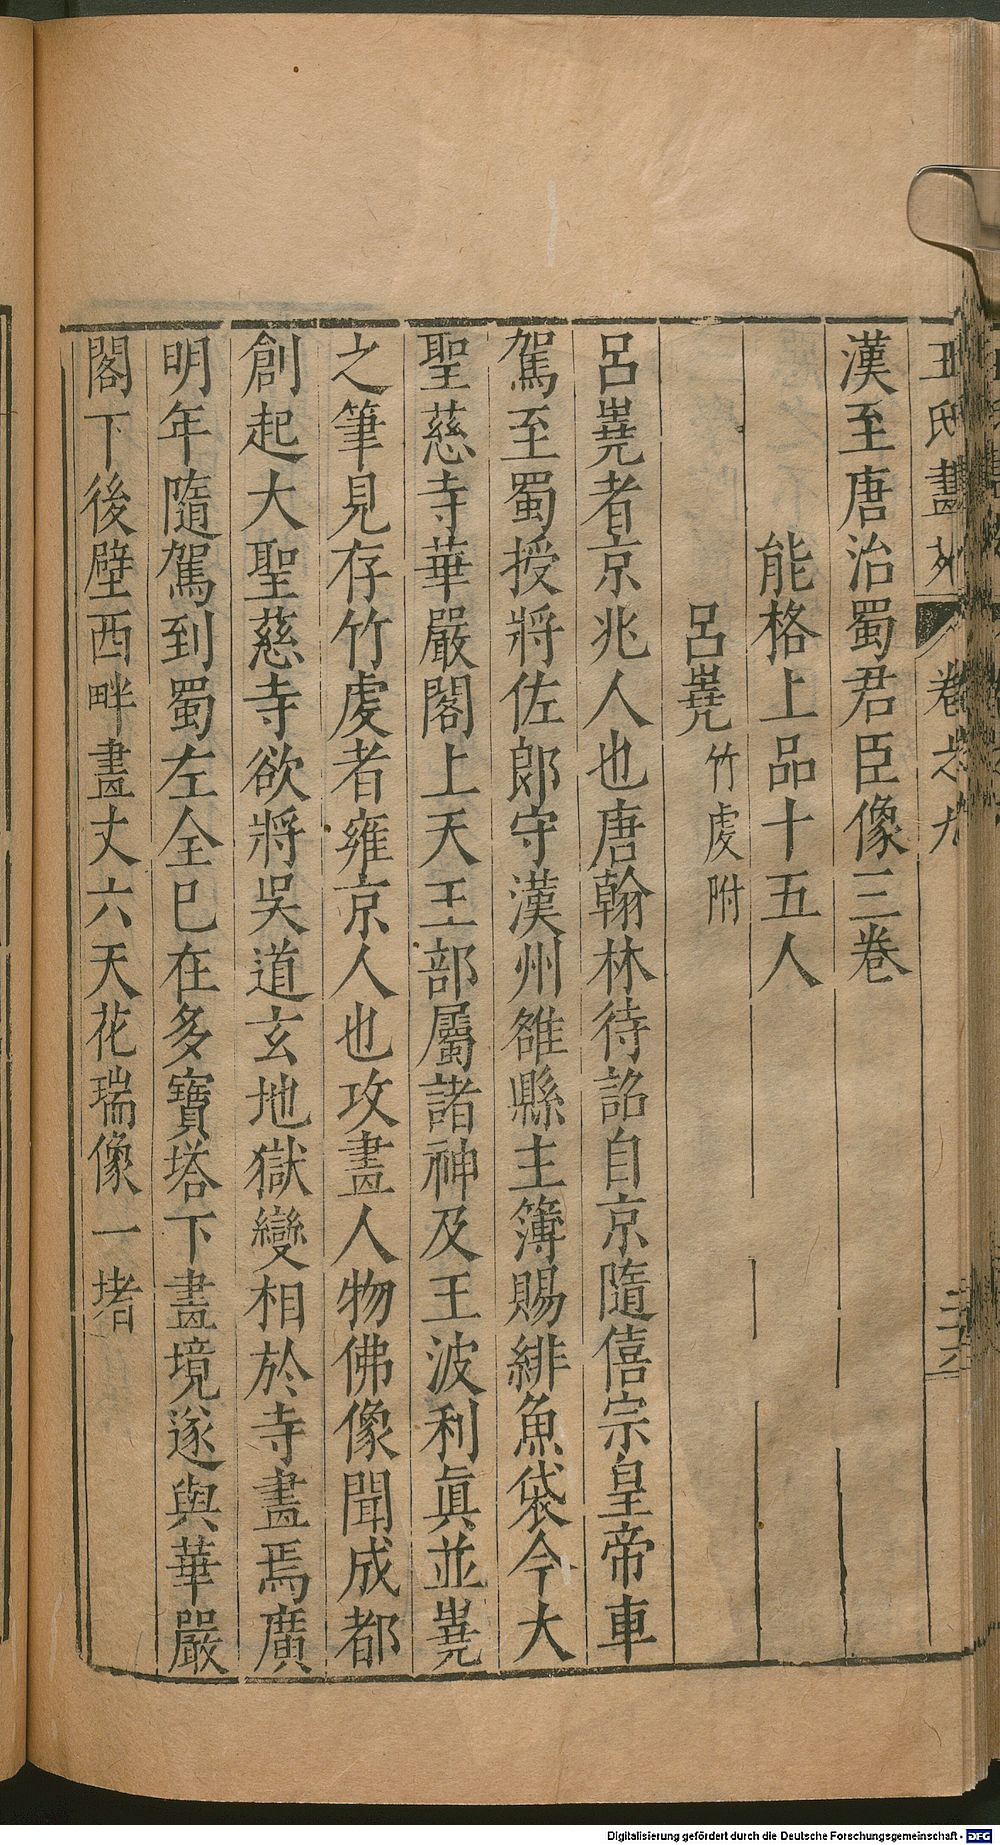 王氏畫苑 卷之九 三六
漢至唐治蜀君臣像三卷
能格上品十五人
呂嶤 竹虔附
呂嶤者京兆人也唐翰林待詔自京隨僖宗皇帝車
駕至蜀授將佐郎守漢州雒縣主簿賜緋魚袋今大
聖慈寺華嚴閣上天王部屬諸神及王波利眞並嶤
之筆見存竹虔者雍京人也攻畫人物佛像聞成都
創起大聖慈寺欲將吳道玄地獄變相於寺畫焉廣
明年隨駕到蜀左全巳在多寶塔下畫境遂與華嚴
閣下後壁西畔畫丈六天花瑞像一堵
Digitalisierung gefördert durch die Deutsche Forschungsgemeinschaft - DFG